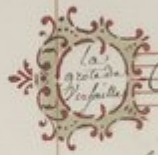 La
grote de
Versailles